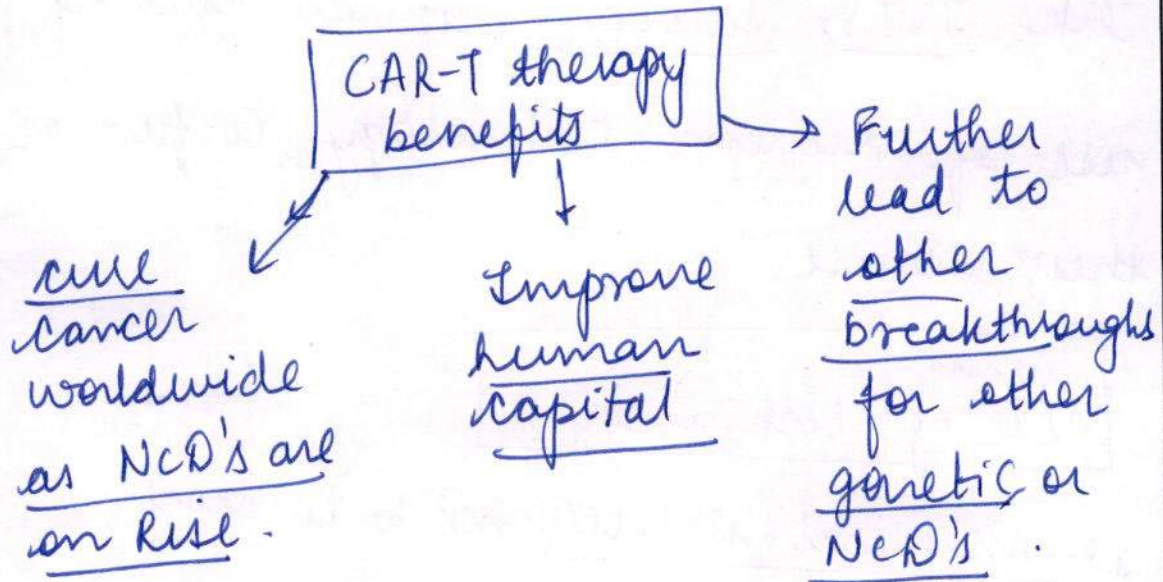 CAR-T therapy
benefits
cure
cancer
worldwide
as NCD's are
on Rise.
Improve
human
capital
Further
lead to
other
breakthroughs
for other
genetic or
NCD's.